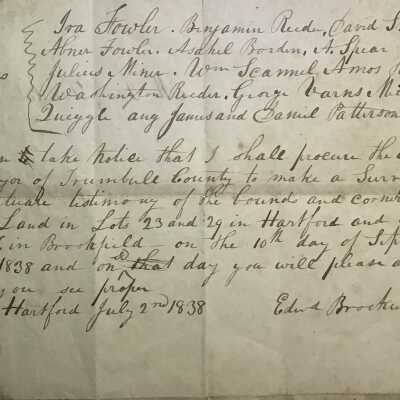 Ira Fowler. Benjamin Reeder, David S
Abner Fowler. Asahel Borden, A. Spear
Julius Miner. Wm Scannel Amos
Washington Reeder, George Varns Mi
Queggle ang James and Daniel Patterson
take Notice that I shall procure the
yor of Trumbull County to make a Surv
etuate testimony of the bounds and corn
Land in Lots 23 and 29 in Hartford and
in Brookfield on the 10th day of Sep
1838 and on sd that day you will please a
you see proper
Hartford July 2nd 1838 Edwd Brockw